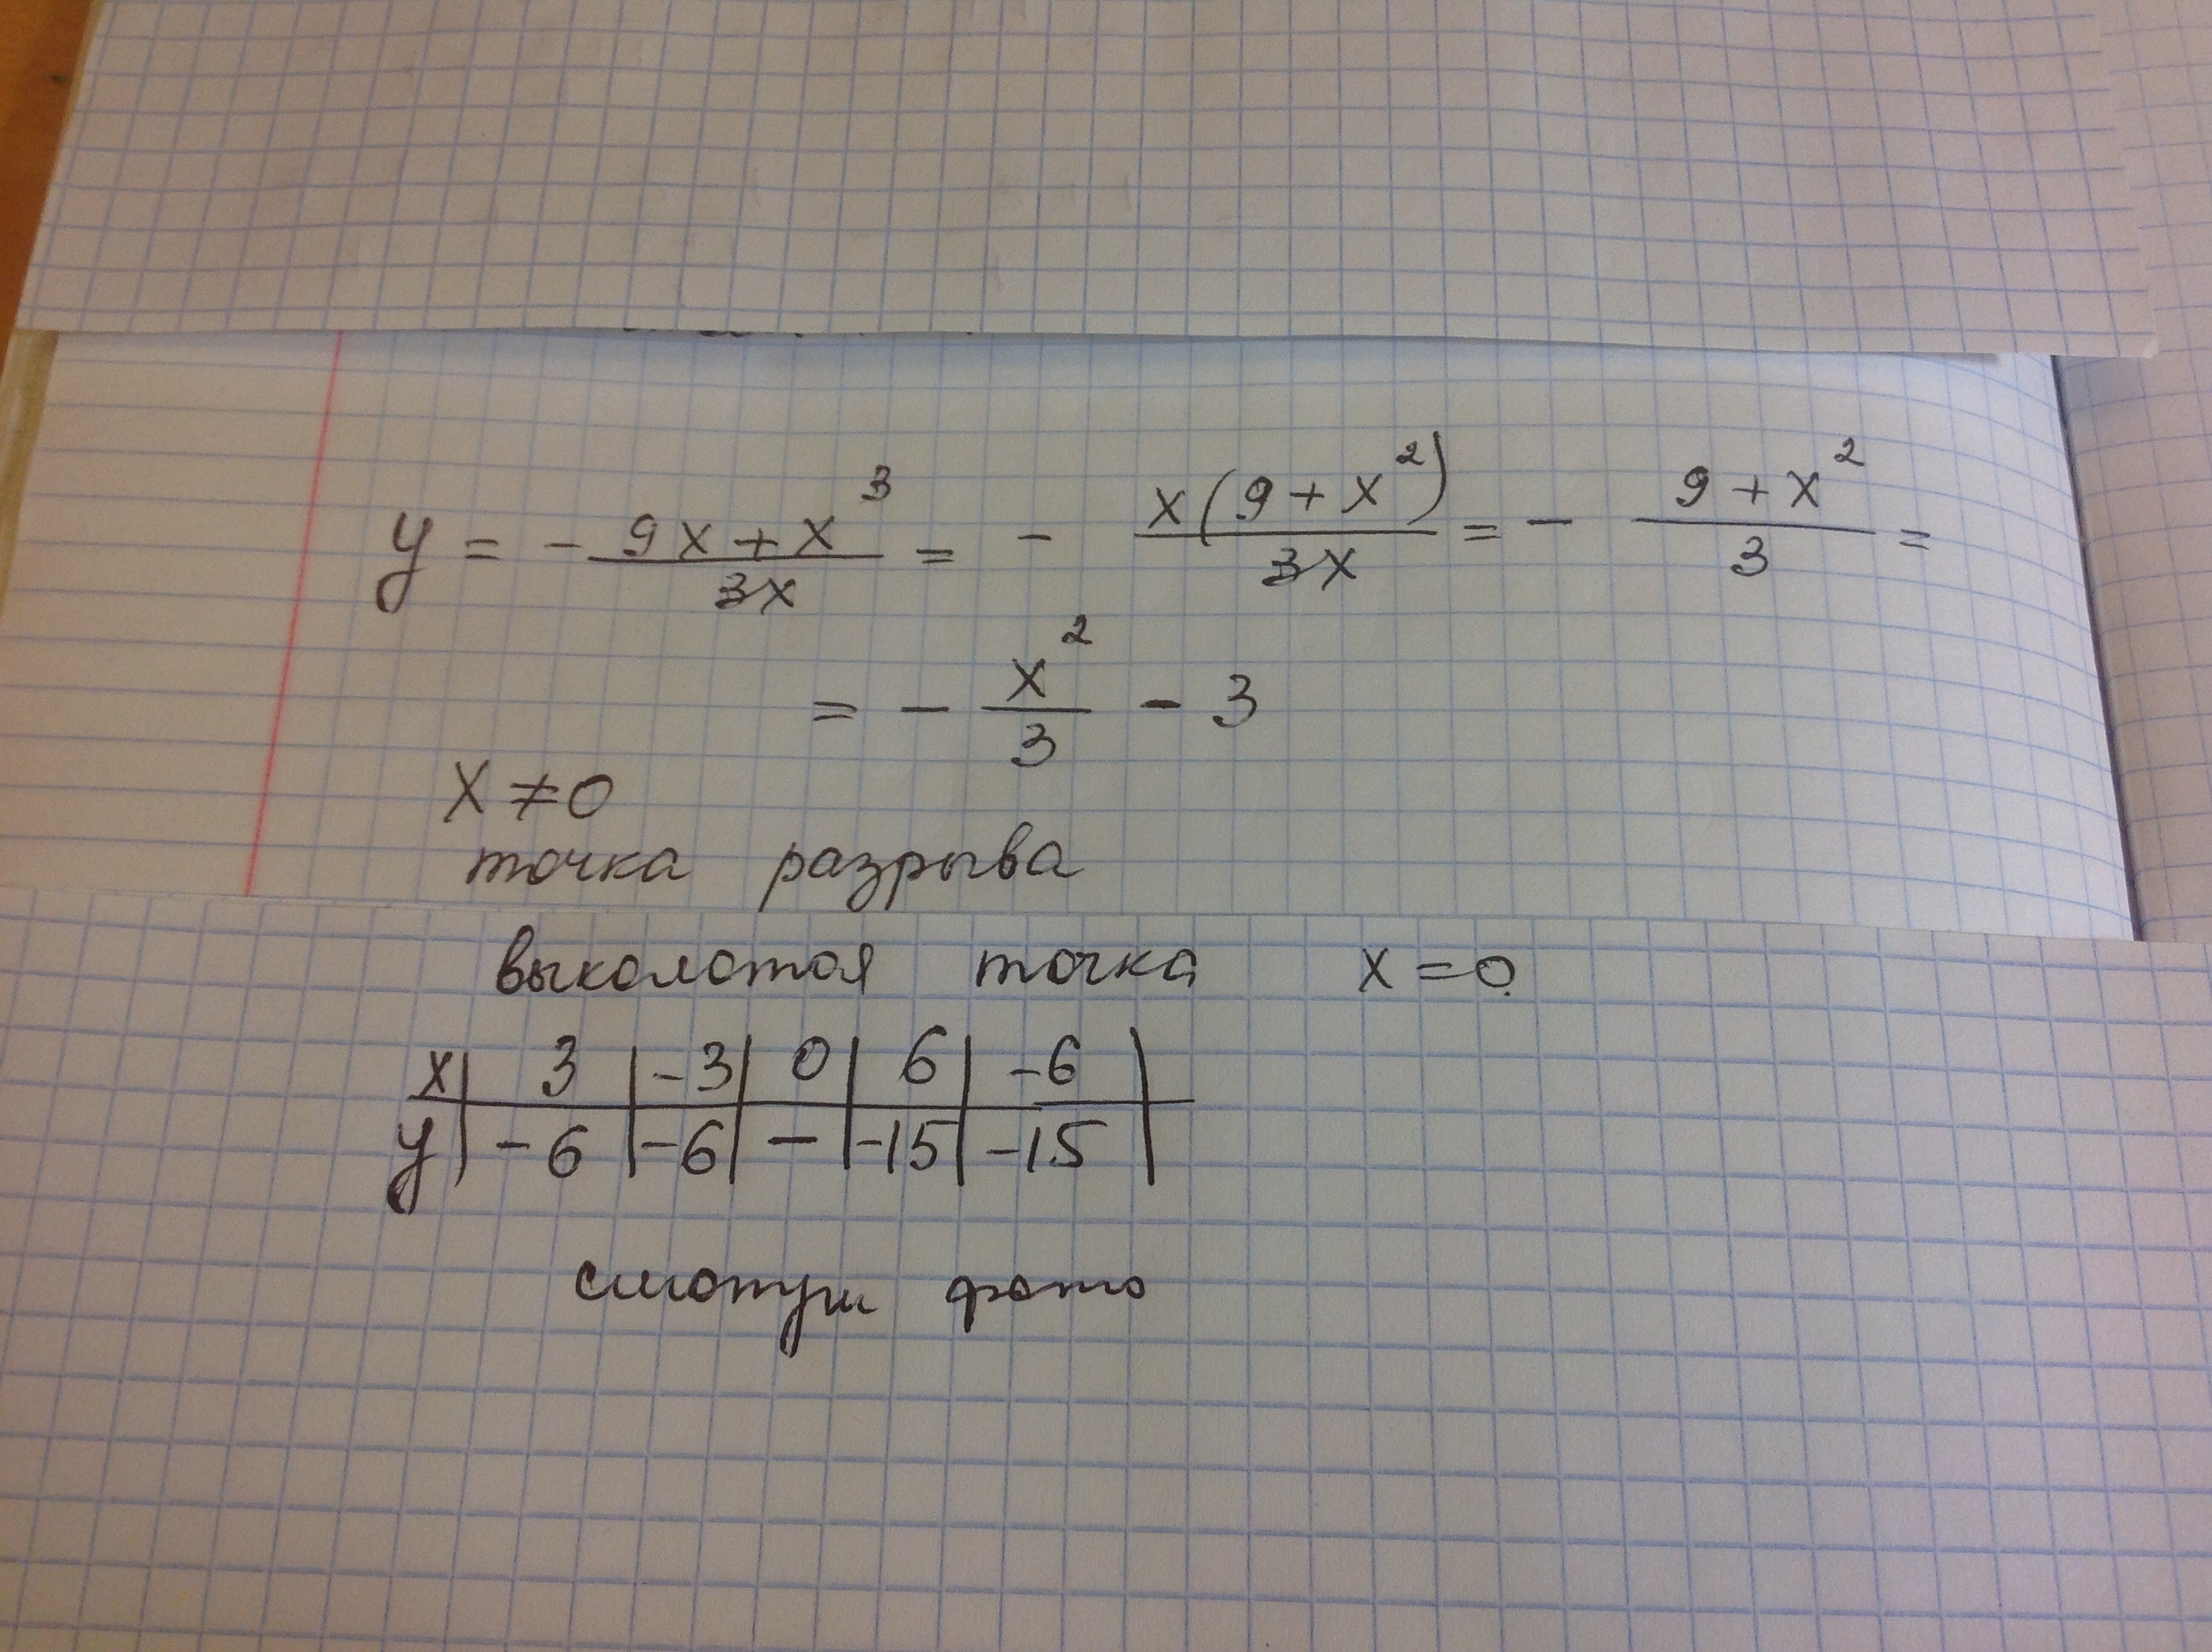 y = - (9x + x³)/(3x) = - (x(9 + x²))/(3x) = - (9 + x²)/3 =
= - x²/3 - 3
x ≠ 0
точка разрыва
выколотая точка x = 0
x | 3 | -3 | 0 | 6 | -6 |
y | -6 | -6 | - | -15 | -15 |
смотри фото